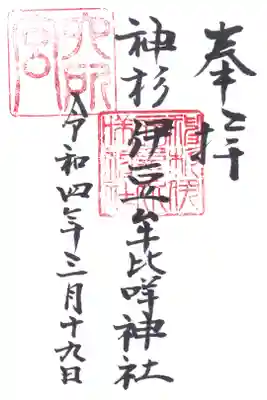 奉拝
神杉 伊豆牟比咩神社
令和四年三月十九日
六所宮